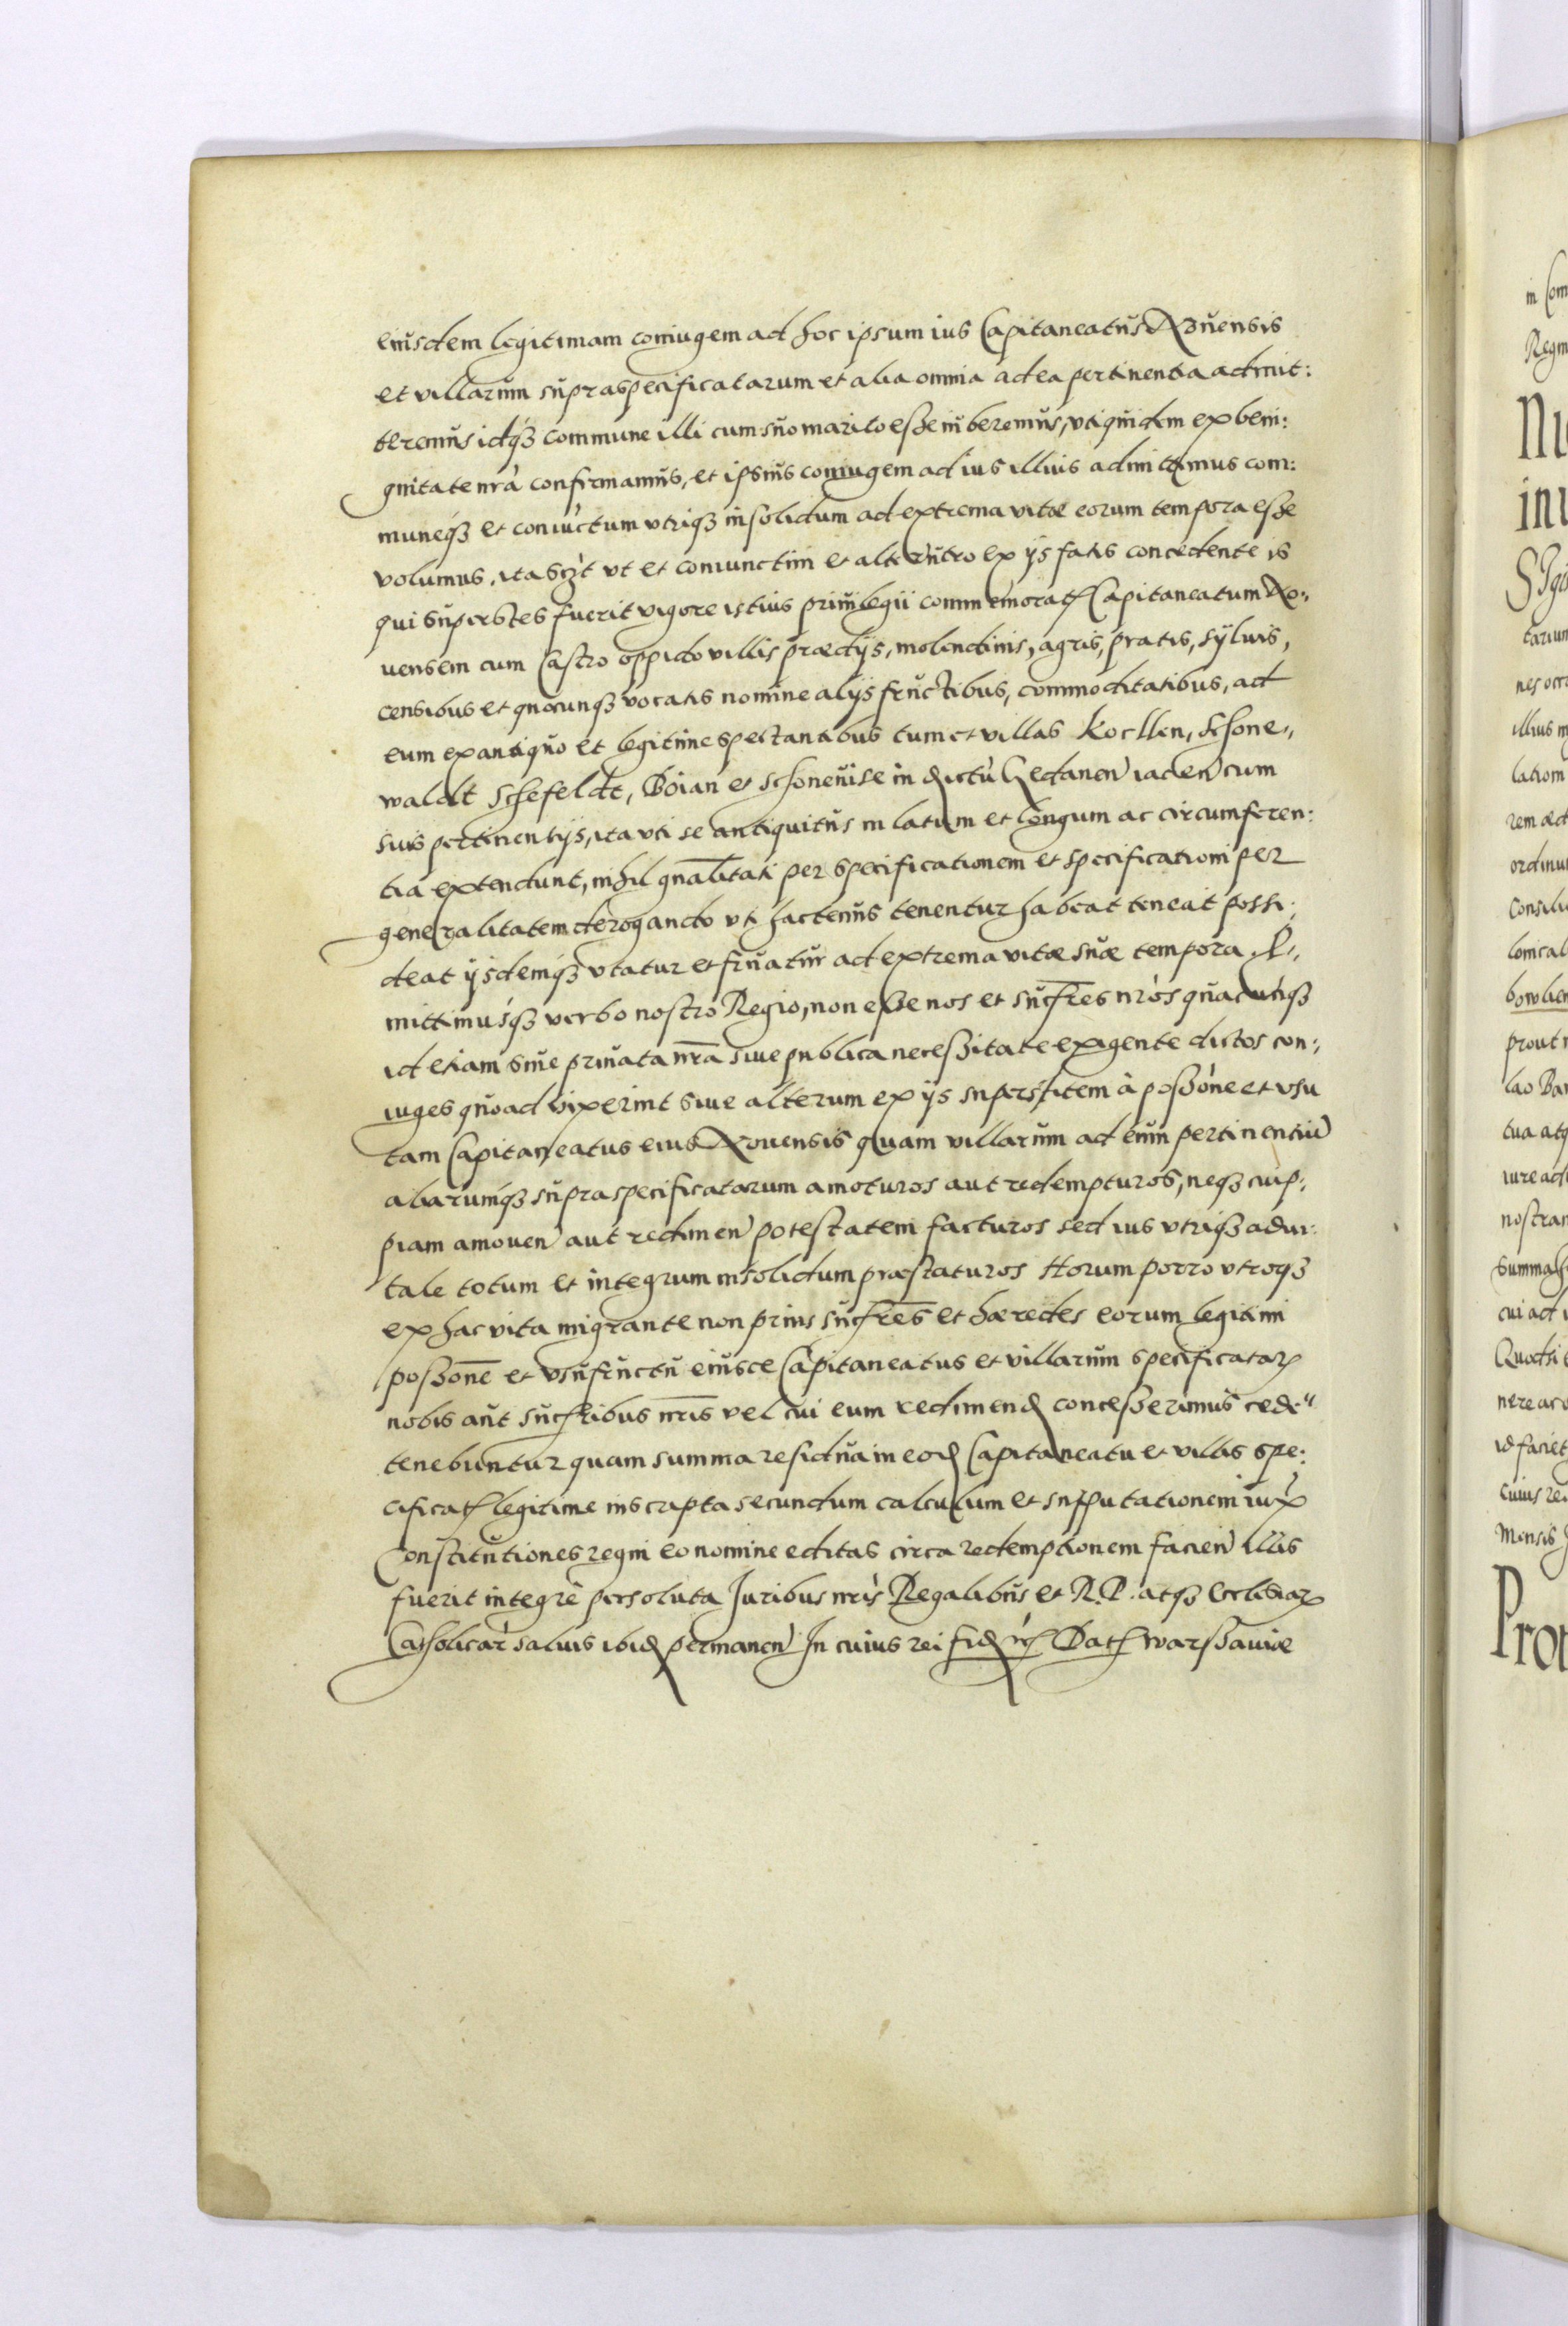 eiusdem legitimam coniugem ad hoc ipsum ius Capitaneatus Xouensis
et villarum supraspecificatarum et alia omnia ad ea pertinentia admit:
teremus idq3 commune illi cum suo marito esse iuberemus, vti quidem ex beni:
gnitate nrà confirmamus, et ipsius coniugem ad ius illius admittimus com:
muneq3 et coniùctum vtriq3 insolidum ad extrema vitæ eorum tempora esse
volumus, ita scz̀t vt et coniunctim et alterutro ex ijs fatis concedente is
qui superstes fuerit vigore istius priuilegii commemorat Capitaneatum Xo:
uensem cum Castro oppido villis prædijs, molendinis, agris, pratis, syluis,
censibus et quocunq3 vocatis nomine alijs fructibus, commoditatibus, ad
eum ex antiquo et legitime spectantibus tum et villas Koellen, Schone,
waldt Schefeldt, Boian et Schonewise in dictù Gedanen iacen cum
suis pertinentijs, ita vti se antiquitus in latum et longum ac circumferen:
tia extendunt, nihil gnalitati per specificationem et specificationi per
generalitatem derogando vti hactenus tenentur habeat teneat possi:
deat ijsdemq3 vtatur et fruatur ad extrema vitæ suæ tempora. P:
mittimusq3 verbo nostro Regio, non esse nos et sucfres nròs quacunq3
id etiam siue priuata nra siue publica necessitate exigente dictos con:
iuges quoad vixerint siue alterum ex ijs superstitem à possone et vsu
tam Capitaneatus eius Xouensis quam villarum ad eum pertinentiù
aliarumq3 supraspecificatarum amoturos aut redempturos, neq3 cuip:
piam amouen aut redimen potestatem facturos sed ius vtriq3 adui:
tale totum et integrum insolidum præstaturos Horum porro vtroq3
ex hac vita migrante non prius sucfres et hæredes eorum legitimi
possone et vsufructu eiusce Capitaneatus et villarum specificatar
nobis aut sucfribus nris vel cui eum redimend concesserimus cede:
tenebuntur quam summa residua in eod Capitaneatu et villis spe:
cificat legitime inscripta secundum calculum et supputationem iux
Constitutiones regni eo nomine editas circa redemptionem facien illis
fuerit integrè persoluta Juribus nris Regalibus et R.P. atq3 Ecclesiar
Catholicar saluis ibid permanen In cuius rei fid Dat Warssauiæ